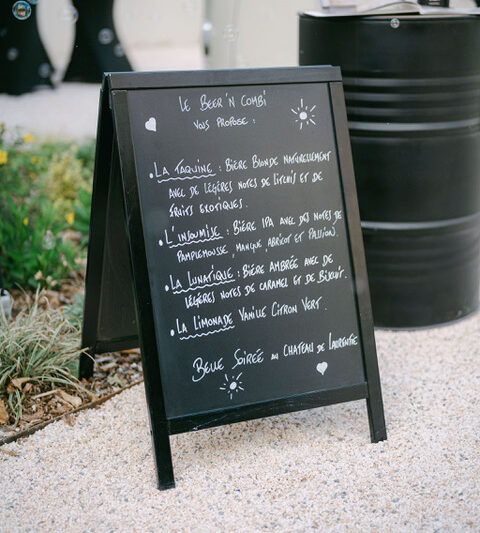 Le Beer'n Combi
vous propose :
• La Taquine : Bière Blonde naturellement
avec de légères notes de litchis et de
fruits exotiques.
• L'insoumise : Bière IPA avec des notes de
pamplemousse, mangue abricot et passion.
• La Lunatique : Bière Ambrée avec de
légères notes de caramel et de biscuit.
• La Limonade Vanille Citron Vert.
Belle Soirée au Chateau de Laurentie